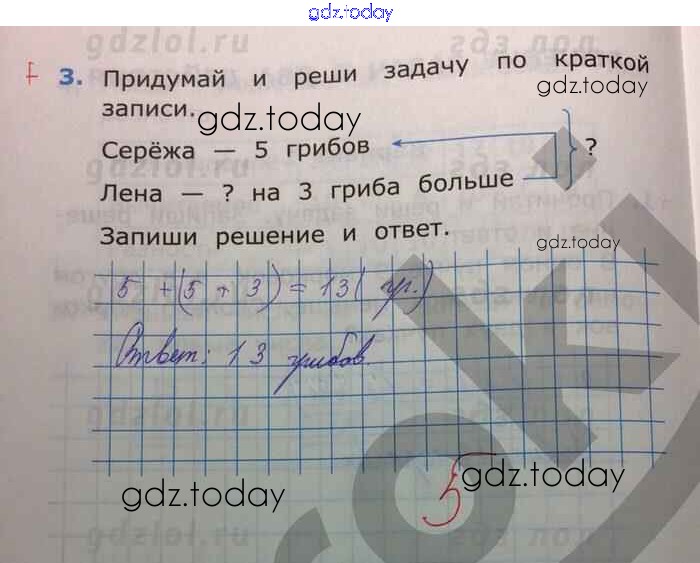 gdz.today
gdzlol.ru
3. Придумай и реши задачу по краткой
gdz.today
записи.
gdz.today
Серёжа — 5 грибов
?
Лена — ? на 3 гриба больше
Запиши решение и ответ.
gdz.today
5 + (5 + 3) = 13 ( гр.)
Ответ: 13 грибов
gdz.today
gdz.today
5
gdzlol.ru